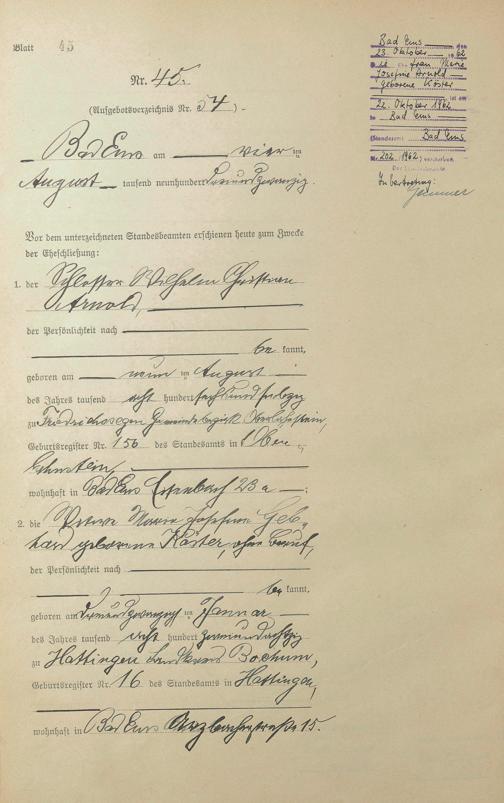 Blatt 45
Nr. 45.
(Aufgebotsverzeichnis Nr. 54).
Bad Ems am vier ten
August tausend neunhundert
Vor dem unterzeichneten Standesbeamten erschienen heute zum Zwecke
der Eheschließung:
1. der Schlosser Wilhelm Christian
Arnold,
der Persönlichkeit nach
be kannt,
geboren am neun ten August
des Jahres tausend acht hundert
zu Friedrichssegen Gemeindebezirk Oberlahnstein,
Geburtsregister Nr. 156 des Standesamts in Ober-
lahnstein,
wohnhaft in Bad Ems Eisenbach 23 a;
2. die Witwe Maria Josefine Geb-
hard geborene Köster, ohne Beruf,
der Persönlichkeit nach
be kannt,
geboren am dreiundzwanzig ten Januar
des Jahres tausend acht hundert zweiundachtzig
zu Hattingen Landkreis Bochum,
Geburtsregister Nr. 16 des Standesamts in Hattingen,
wohnhaft in Bad Ems Arzbacherstraße 15.
Bad Ems, den
23. Oktober 1962
Die Frau Maria
Josefine Arnold
geborene Köster
ist am
22. Oktober 1962
in Bad Ems
(Standesamt Bad Ems
Nr. 202/1962) verstorben.
Der Standesbeamte
In Vertretung: